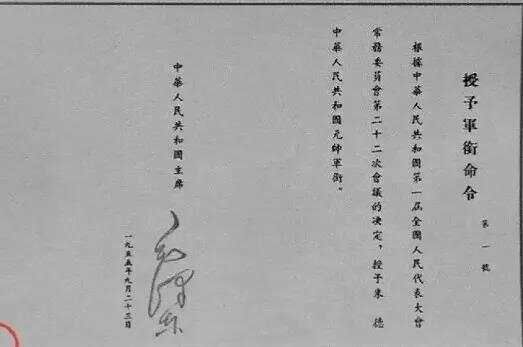 授予軍銜命令
第一號
根據中華人民共和國第一屆全國人民代表大會
常務委員會第二十二次會議的决定，授予朱　德
中華人民共和國元帥軍銜。
中華人民共和國主席
毛澤東
一九五五年九月二十三日